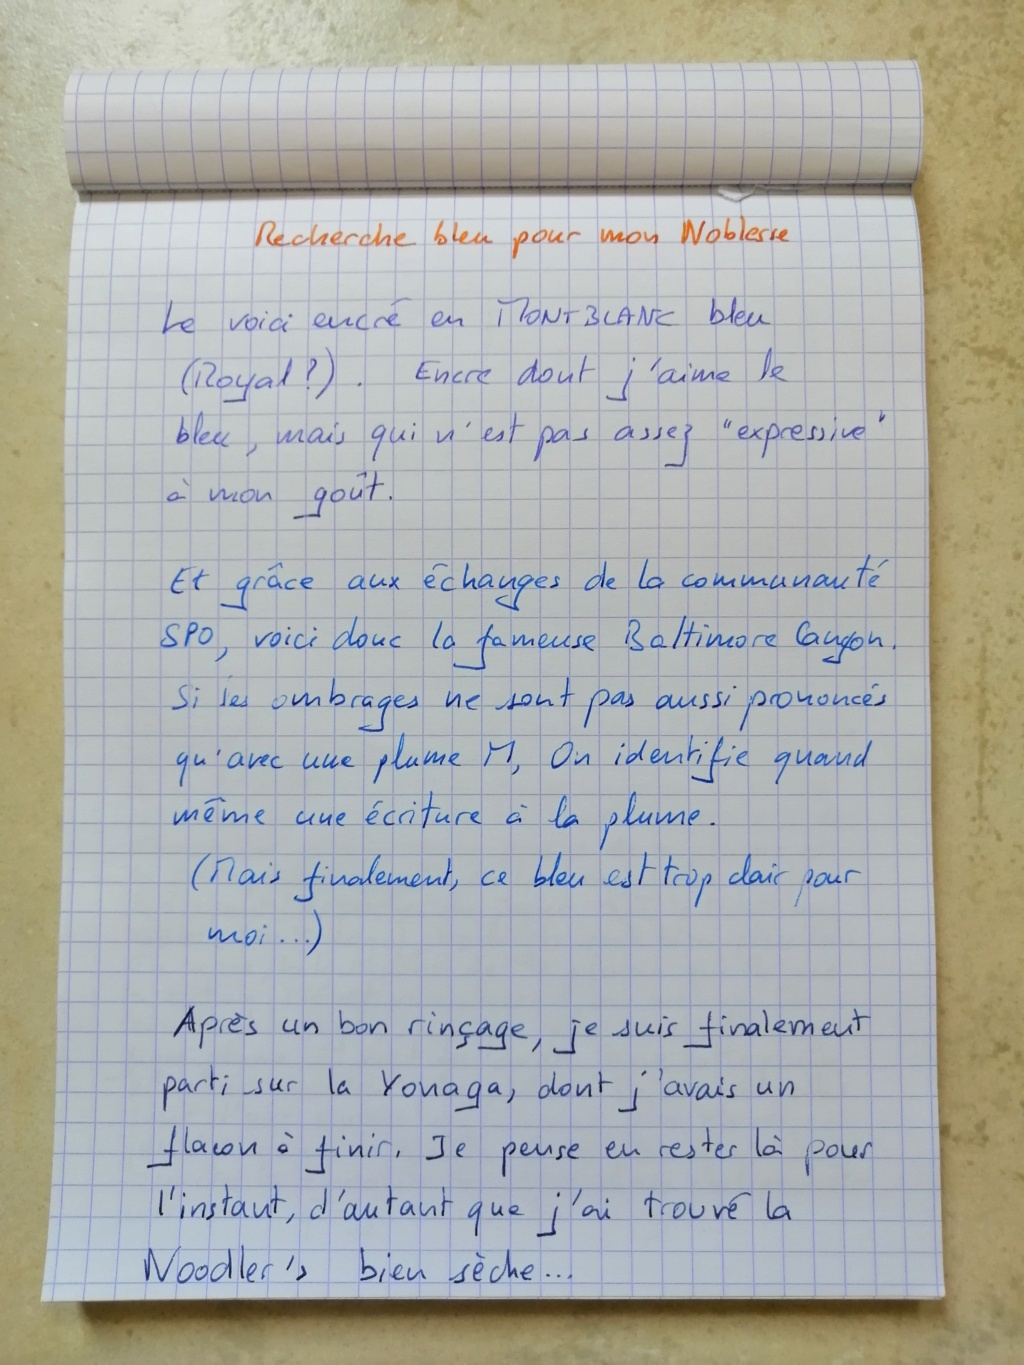 Recherche bleu pour mon Noblesse
Le voici encré en MONTBLANC bleu
(Royal ?). Encre dont j'aime le
bleu, mais qui n'est pas assez "expressive"
à mon goût.
Et grâce aux échanges de la communauté
SPO, voici donc la fameuse Baltimore Canyon.
Si les ombrages ne sont pas aussi prononcés
qu'avec une plume M, On identifie quand
même une écriture à la plume.
(Mais finalement, ce bleu est trop clair pour
moi...)
Après un bon rinçage, je suis finalement
parti sur la Yonaga, dont j'avais un
flacon à finir. Je pense en rester là pour
l'instant, d'autant que j'ai trouvé la
Noodler's bien sèche...